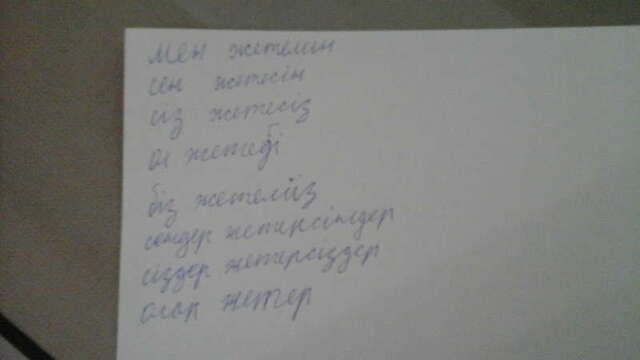 Мен жетемін
сен жетесін
сіз жетесіз
ол жетеді
біз жетеміз
сендер жетерсіңдер
сіздер жетерсіздер
олар жетер